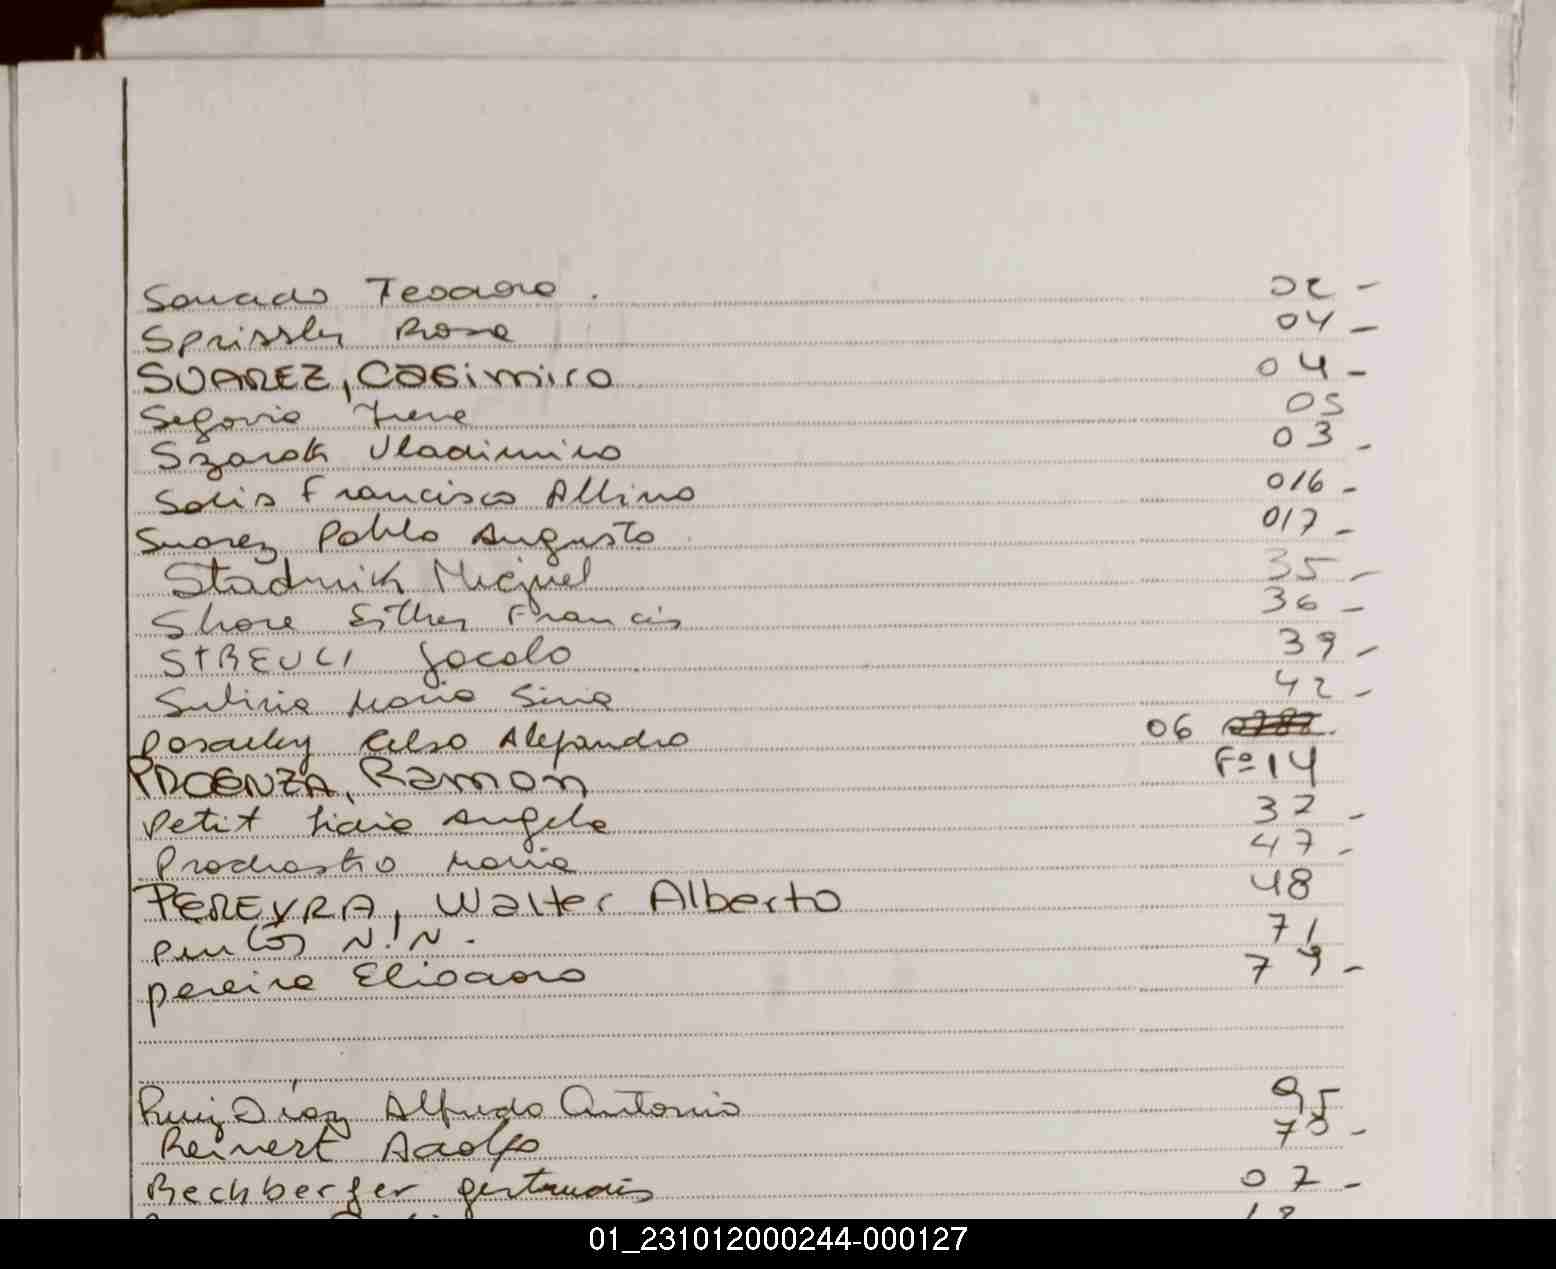 Teodoro. 02 -
Sprissler Rosa 04 -
SUAREZ, Casimiro 04 -
Segovia Irene 05
Szarok Vladimiro 03 -
Solis Francisco Albino 016 -
Suarez Pablo Augusto 017 -
Stadnik Miguel 35 -
Shore Esther Francis 36 -
STREULI Jacobo 39 -
Maria 42 -
Celso Alejandro 06
PROENZA, Ramon Fº 14
Petit Lidia Angela 37 -
Maria 47 -
PEREYRA, Walter Alberto 48
N.N. 71
pereira Eliodoro 79 -
Ruiz Díaz Alfredo Antonio 95
Reinert Adolfo 70 -
Rechberger gertrudis 07 -
01_231012000244-000127